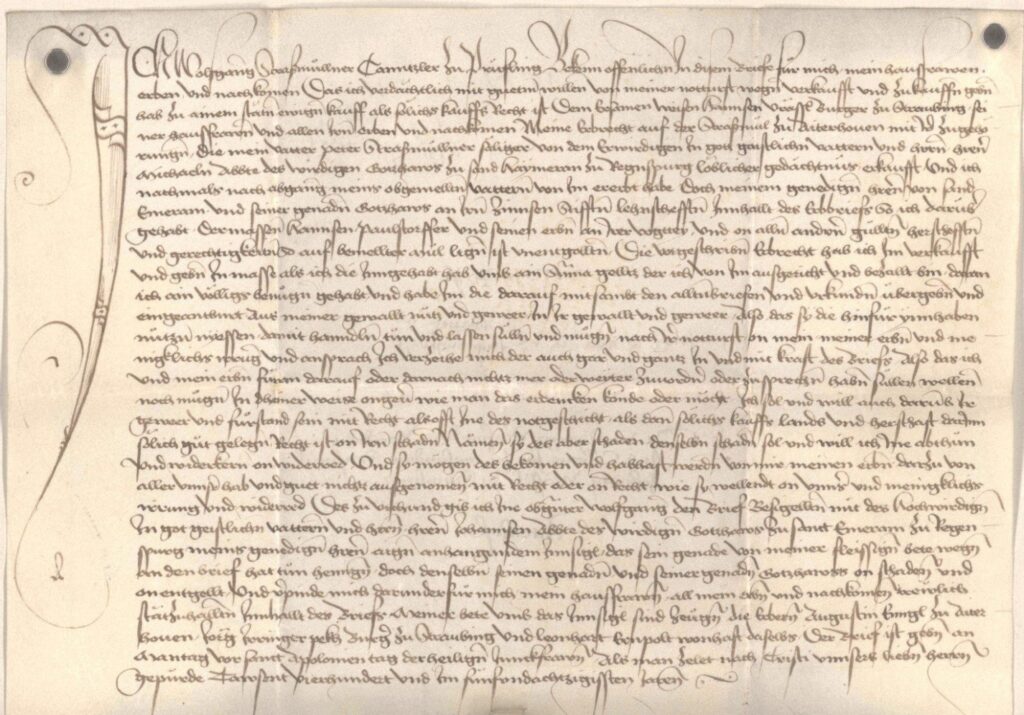 Ich Wolfgang Straßmüllner Canntzler zu Prüfling Bekenn offenlichn In disem Briefe für mich mein haussfrawen
erben und nachkomen Das ich verdächtlich mit guetm willen von meiner notturft wegn verkaufft und zukauffn gebn
hab zu ainem stätn ewigen kauff als solichs kauffs Recht ist Dem Ersamen weisen Hannsen Burger zu Strawbing sei
ner Haussfrawn und allen irn erben und nachkomen Meine erbrecht auf der Straßmül zu Aiterhouen mit Ir zugehö
rungn Die mein vatter peter Straßmüllner säliger von dem Erwirdigen In got geistlichn vattern und herrn hern
Michaeln Abbte des wirdigen Gotzhaws zu sand Haymeran zu Regnspurg löblicher gedächtnüs erkaufft Und ich
nachmals nach abgang meins obgemellten vattern von Im ererbt habe Doch meinem genedign hern von sand
Emeram und seiner genadn Gotzhaws an irn Zinnsen Stifftn lehnschefftn Innhallt des Erbbriefs So ich darub
gehabt Dermassen Hannsen paulstorffer und seinen erbn an irer vogtey und an alln andern gülltn herschefftn
und gerechtigkeitn So auf bemellter mül lign ist unentgolltn Die vorgeschribn Erbrecht hab ich Im verkaufft
und gebn In masse als ich die Inngehabt hab Umb ain Suma gelltz der ich von Im ausgericht und bezallt bin daran
ich ain völligs benügn gehabt und habe Im die darauf mitsambt den alltn briefen und urkundn übergebn und
eingeantwurt Aus meiner gewallt nutz und gewer In Ir gewallt und gewere Also das sy die hinfür ynnhaben
nützn niessen damit hanndln tün und lassen sulln und mügn nach Ir notturft on mein meiner erbn und me
nigklichs irrung und ansprach Ich verzeihe mich der auch gar und gantz In und mit kraft des Briefs Also das ich
und mein erbn füran darauf oder darnach nichtz mer oder weiter zuvordrn oder zusprechn habn sullen wellen
noch mügn In dhainer weise ongeuer wie man das erdencken künde oder möcht Ich sol und will auch darub Ir
gewer und fürstand sein mit Recht alsofft Ine des notgeschicht als dann solichs kauffs lannds und herschaft darinn
solich güt gelegn Recht ist on irn schadn Nämen sy des aber schaden denselbn schadn sol und will ich Ine abthun
und widerkern on widerred Und sy mögen des bekomen und habhaft werdn von mir meinen erbn darzu von
aller unser hab und guet nichtz ausgenomen mit Recht oder on Recht wie sy wellendt on unser und menigklichs
irrung und widerred Des zu urchund gib ich Ine obgnter wolfgang den Brief Besigelltn mit des Hochwirdign
In got geistlichn vattern und herrn hern Johannsen Abbte des wirdign Gotzhaws zu sanct Emeram zu Regen
spurg meins genedign hern aign anhanngundem Innsigl das sein genade von meiner fleissign bete wegn
an den brief hat tün hengn doch denselbn seinen genadn und seiner genadn Gotzhawss on schadn und
on entgellt Und verpinde mich darunder für mich mein haussfrawen all mein erbn und nachkomen trewlich
stätzuhalltn Innhallt des Briefs Meiner bete umb das Innsigl sind zeugn die Erbern Augustin Einngl zu Aiter
houen Jörg Burger zu Strawbing und leonhart wonhaft daselbs Der Brief ist gebn an
Mantag vor sanct Apolonien tag der heiligen Junckfrawn Als man zelet nach Cristi unnsers liebn herrn
gepurde Tawsent vierhundert und Im fünfundachtzigissten Jaren